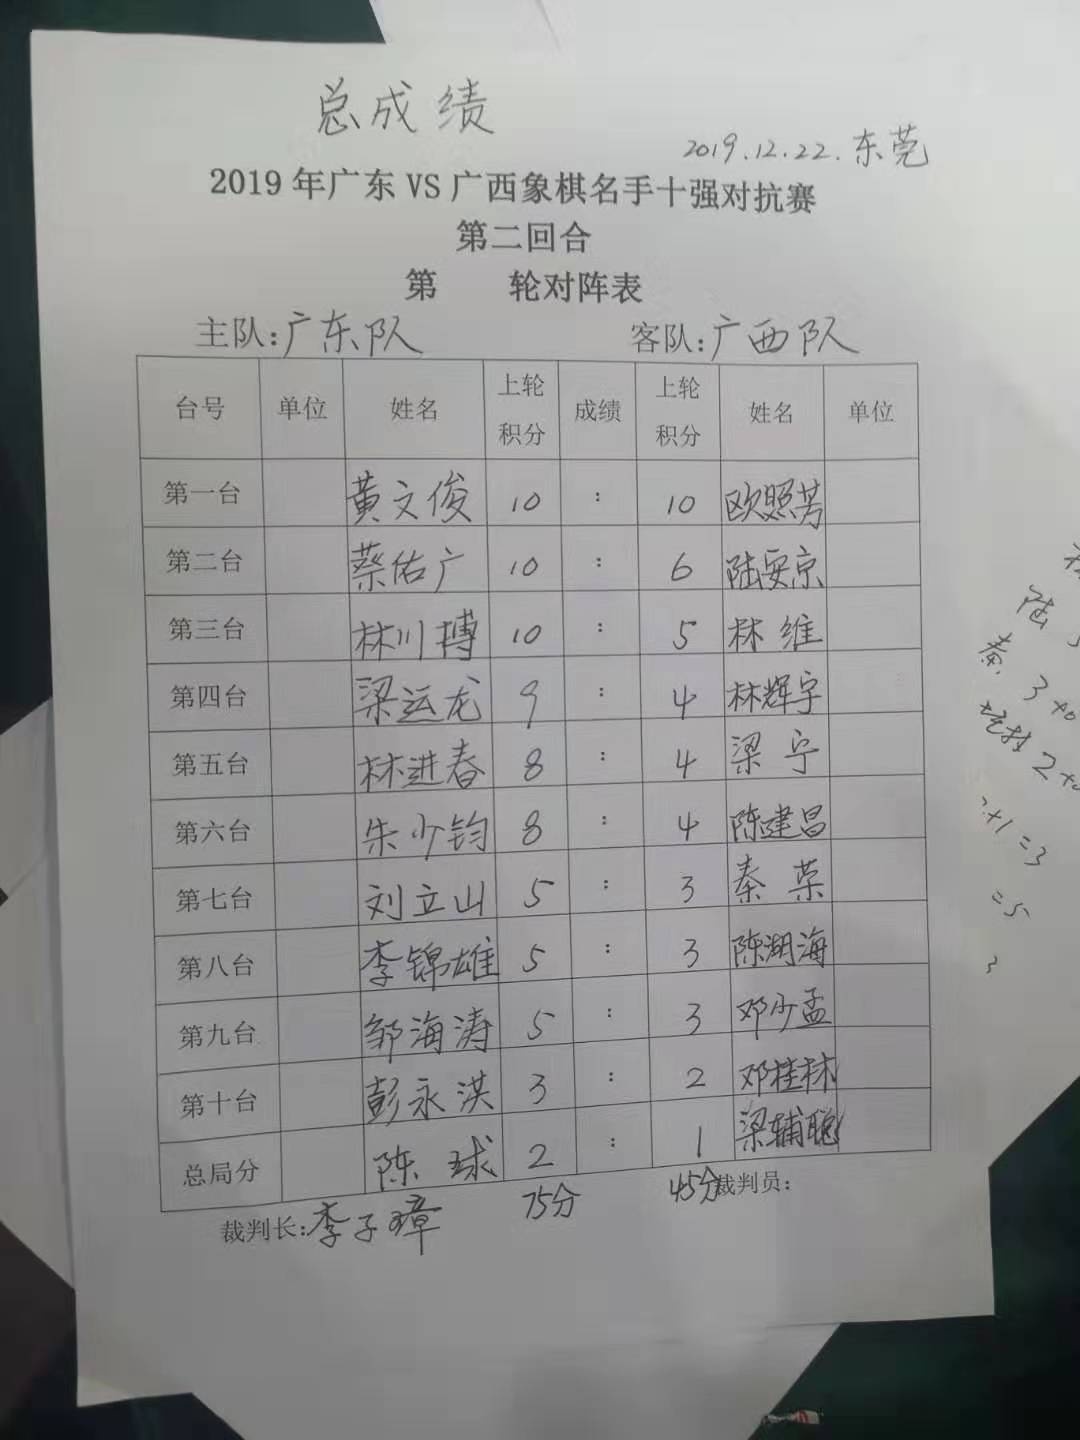 总成绩
2019.12.22.东莞
2019年广东VS广西象棋名手十强对抗赛
第二回合
第 轮对阵表
主队:广东队 客队:广西队
台号 单位 姓名 上轮积分 成绩 上轮积分 姓名 单位
第一台 黄文俊 10 : 10 欧照芳
第二台 蔡佑广 10 : 6 陆安京
第三台 林川博 10 : 5 林维
第四台 梁运龙 9 : 4 林辉宇
第五台 林进春 8 : 4 梁宁
第六台 朱少钧 8 : 4 陈建昌
第七台 刘立山 5 : 3 秦荣
第八台 李锦雄 5 : 3 陈湖海
第九台 邹海涛 5 : 3 邓少孟
第十台 彭永洪 3 : 2 邓桂林
总局分 陈球 2 : 1 梁辅聪
75分 45分
裁判长:李子璋 裁判员:
陆
秦 3+0
2+0
+1=3
=5
3